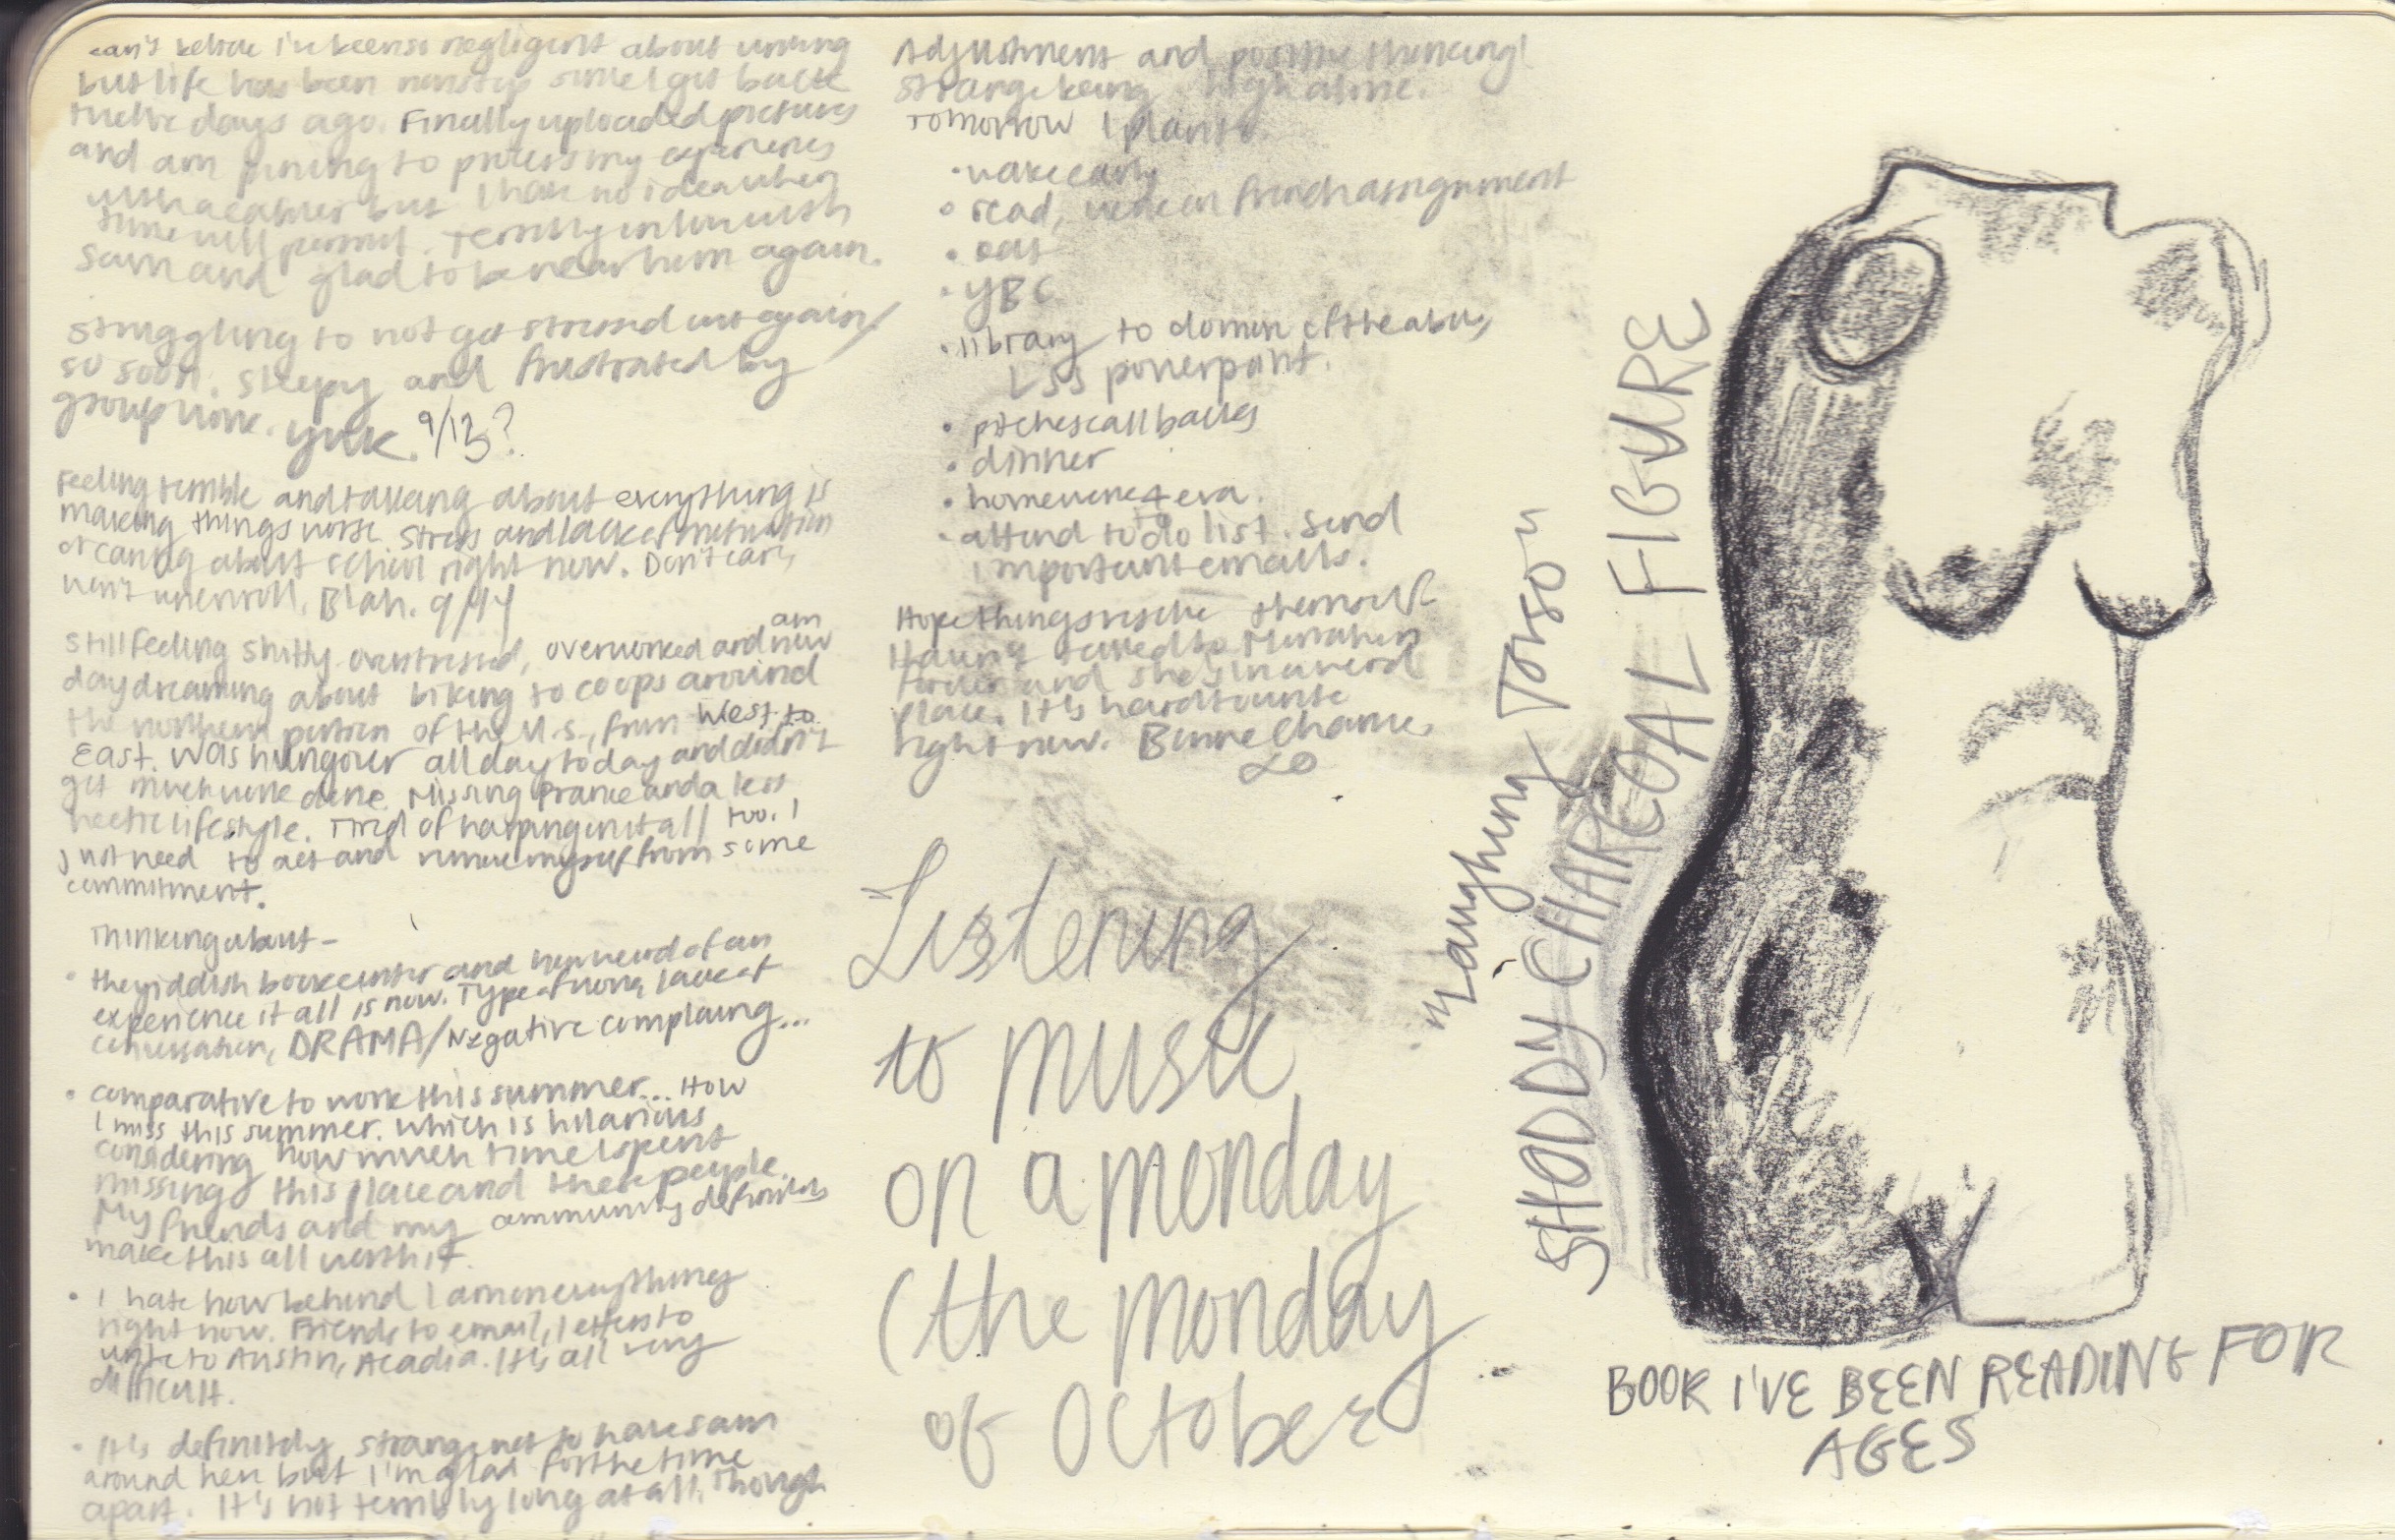 can't believe i've been so negligent about writing
but life has been nonstop since I got back
twelve days ago. Finally uploaded pictures
and am pining to process my experiences
but I have no idea when
time will permit. Terribly in love with
Sam and glad to be near him again.
struggling to not get stressed out again
so soon. Sleepy and frustrated by
group work. yuk. 9/13?
Feeling terrible and talking about everything is
making things worse. Stress and lack of motivation
or caring about school right now. Don't care,
won't unenroll. Blah. 9/14
still feeling shitty. overstressed, overworked and am now
daydreaming about biking to coops around
the northern portion of the U.S., from West to
East. Was hungover all day today and didn't
get much work done. Missing France and a less
hectic lifestyle. Tired of harping on it all too. I
just need to act and remove myself from some
commitment.
Thinking about -
• the yiddish book center and how weird of an
experience it all is now. Type of work, lack of
conversation, DRAMA/Negative complaining...
• comparative to work this summer... How
I miss this summer. Which is hilarious
considering how much time I spent
missing this place and these people.
My friends and my community definitely
make this all worth it.
• I hate how behind I am on everything
right now. Friends to email, letters to
write to Austin, Acadia. It's all very
difficult.
• It's definitely strange not to have Sam
around here but I'm glad for the time
apart. It's not terribly long at all. Though
Adjustment and positive thinking!
Strange being high alone.
Tomorrow I plan to
• wake early
• read, work on french assignment
• eat
• YBC
• library to do more of the above,
LSS powerpoint.
• pitches callbacks
• dinner
• homework 4 eva.
• attend to to do list. Send
important emails.
Hope things resolve themself
Having talked to
and she's in a weird
place. It's hard to write
right now. Bonne Chance,
Listening
to music
on a monday
(the monday
of October
"Laughing Torso"
SHODDY CHARCOAL FIGURE
BOOK I'VE BEEN READING FOR
AGES